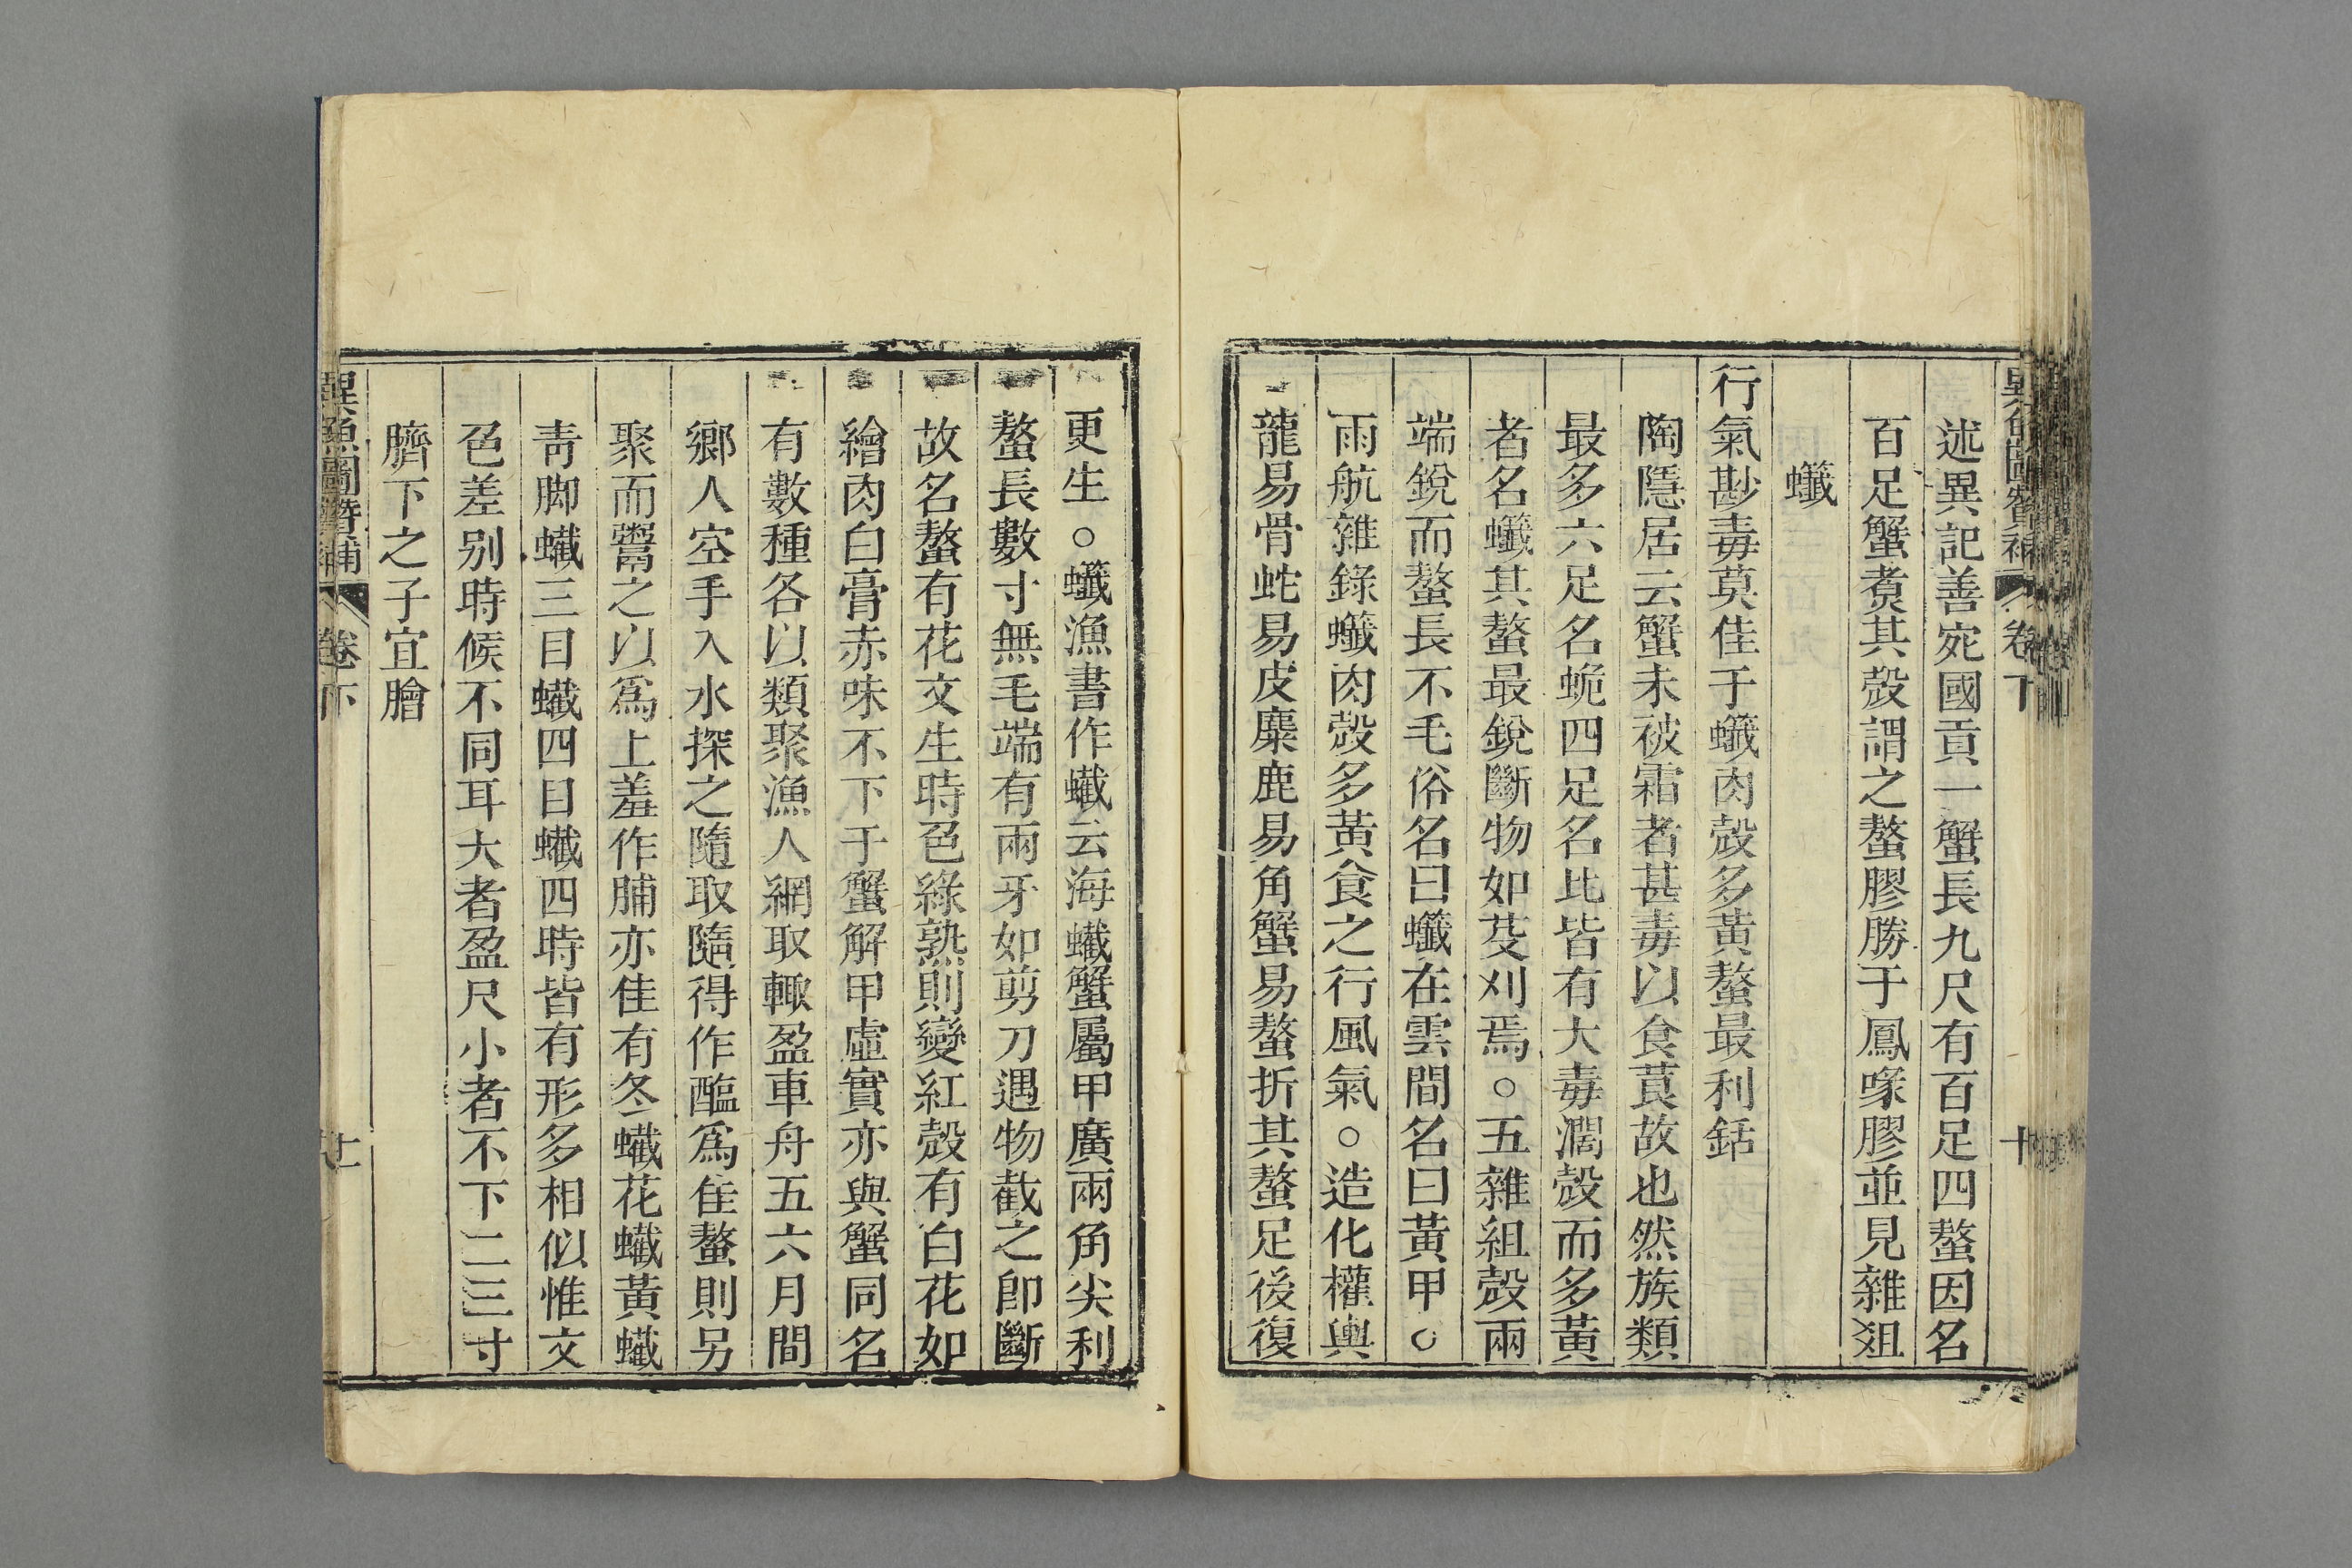 異魚圖贊補
卷下
十
述異記善宛國貢一蟹長九尺有百足四螯因名
百足蟹煑其殻謂之螯膠勝于鳳喙膠並見雜俎
蠘
行氣尠毒莫佳于蠘肉殻多黃螯最利銛
陶隱居云蟹未被霜者甚毒以食莨故也然族類
最多六足名蛫四足名北皆有大毒濶殻而多黃
者名蠘其螯最銳斷物如芟刈焉○五雜組殻兩
端銳而螯長不毛俗名曰蠘在雲間名曰黃甲○
雨航雜錄蠘肉殻多黃食之行風氣○造化權輿
龍易骨蛇易皮麋鹿易角蟹易螯折其螯足後復
更生○蠘漁書作蠘云海蠘蟹屬甲廣兩角尖利
螯長數寸無毛端有兩牙如剪刀遇物截之卽斷
故名螯有花文生時色綠熟則變紅殻有白花如
繪肉白膏赤味不下于蟹解甲虛實亦與蟹同名
有數種各以類聚漁人網取輙盈車舟五六月間
鄉人空手入水探之隨取隨得作醢爲佳螯則另
聚而鬻之以爲上羞作脯亦佳有冬蠘花蠘黃蠘
青脚蠘三目蠘四目蠘四時皆有形多相似惟文
色差别時候不同耳大者盈尺小者不下二三寸
臍下之子宜膾
異魚圖贊補
卷下